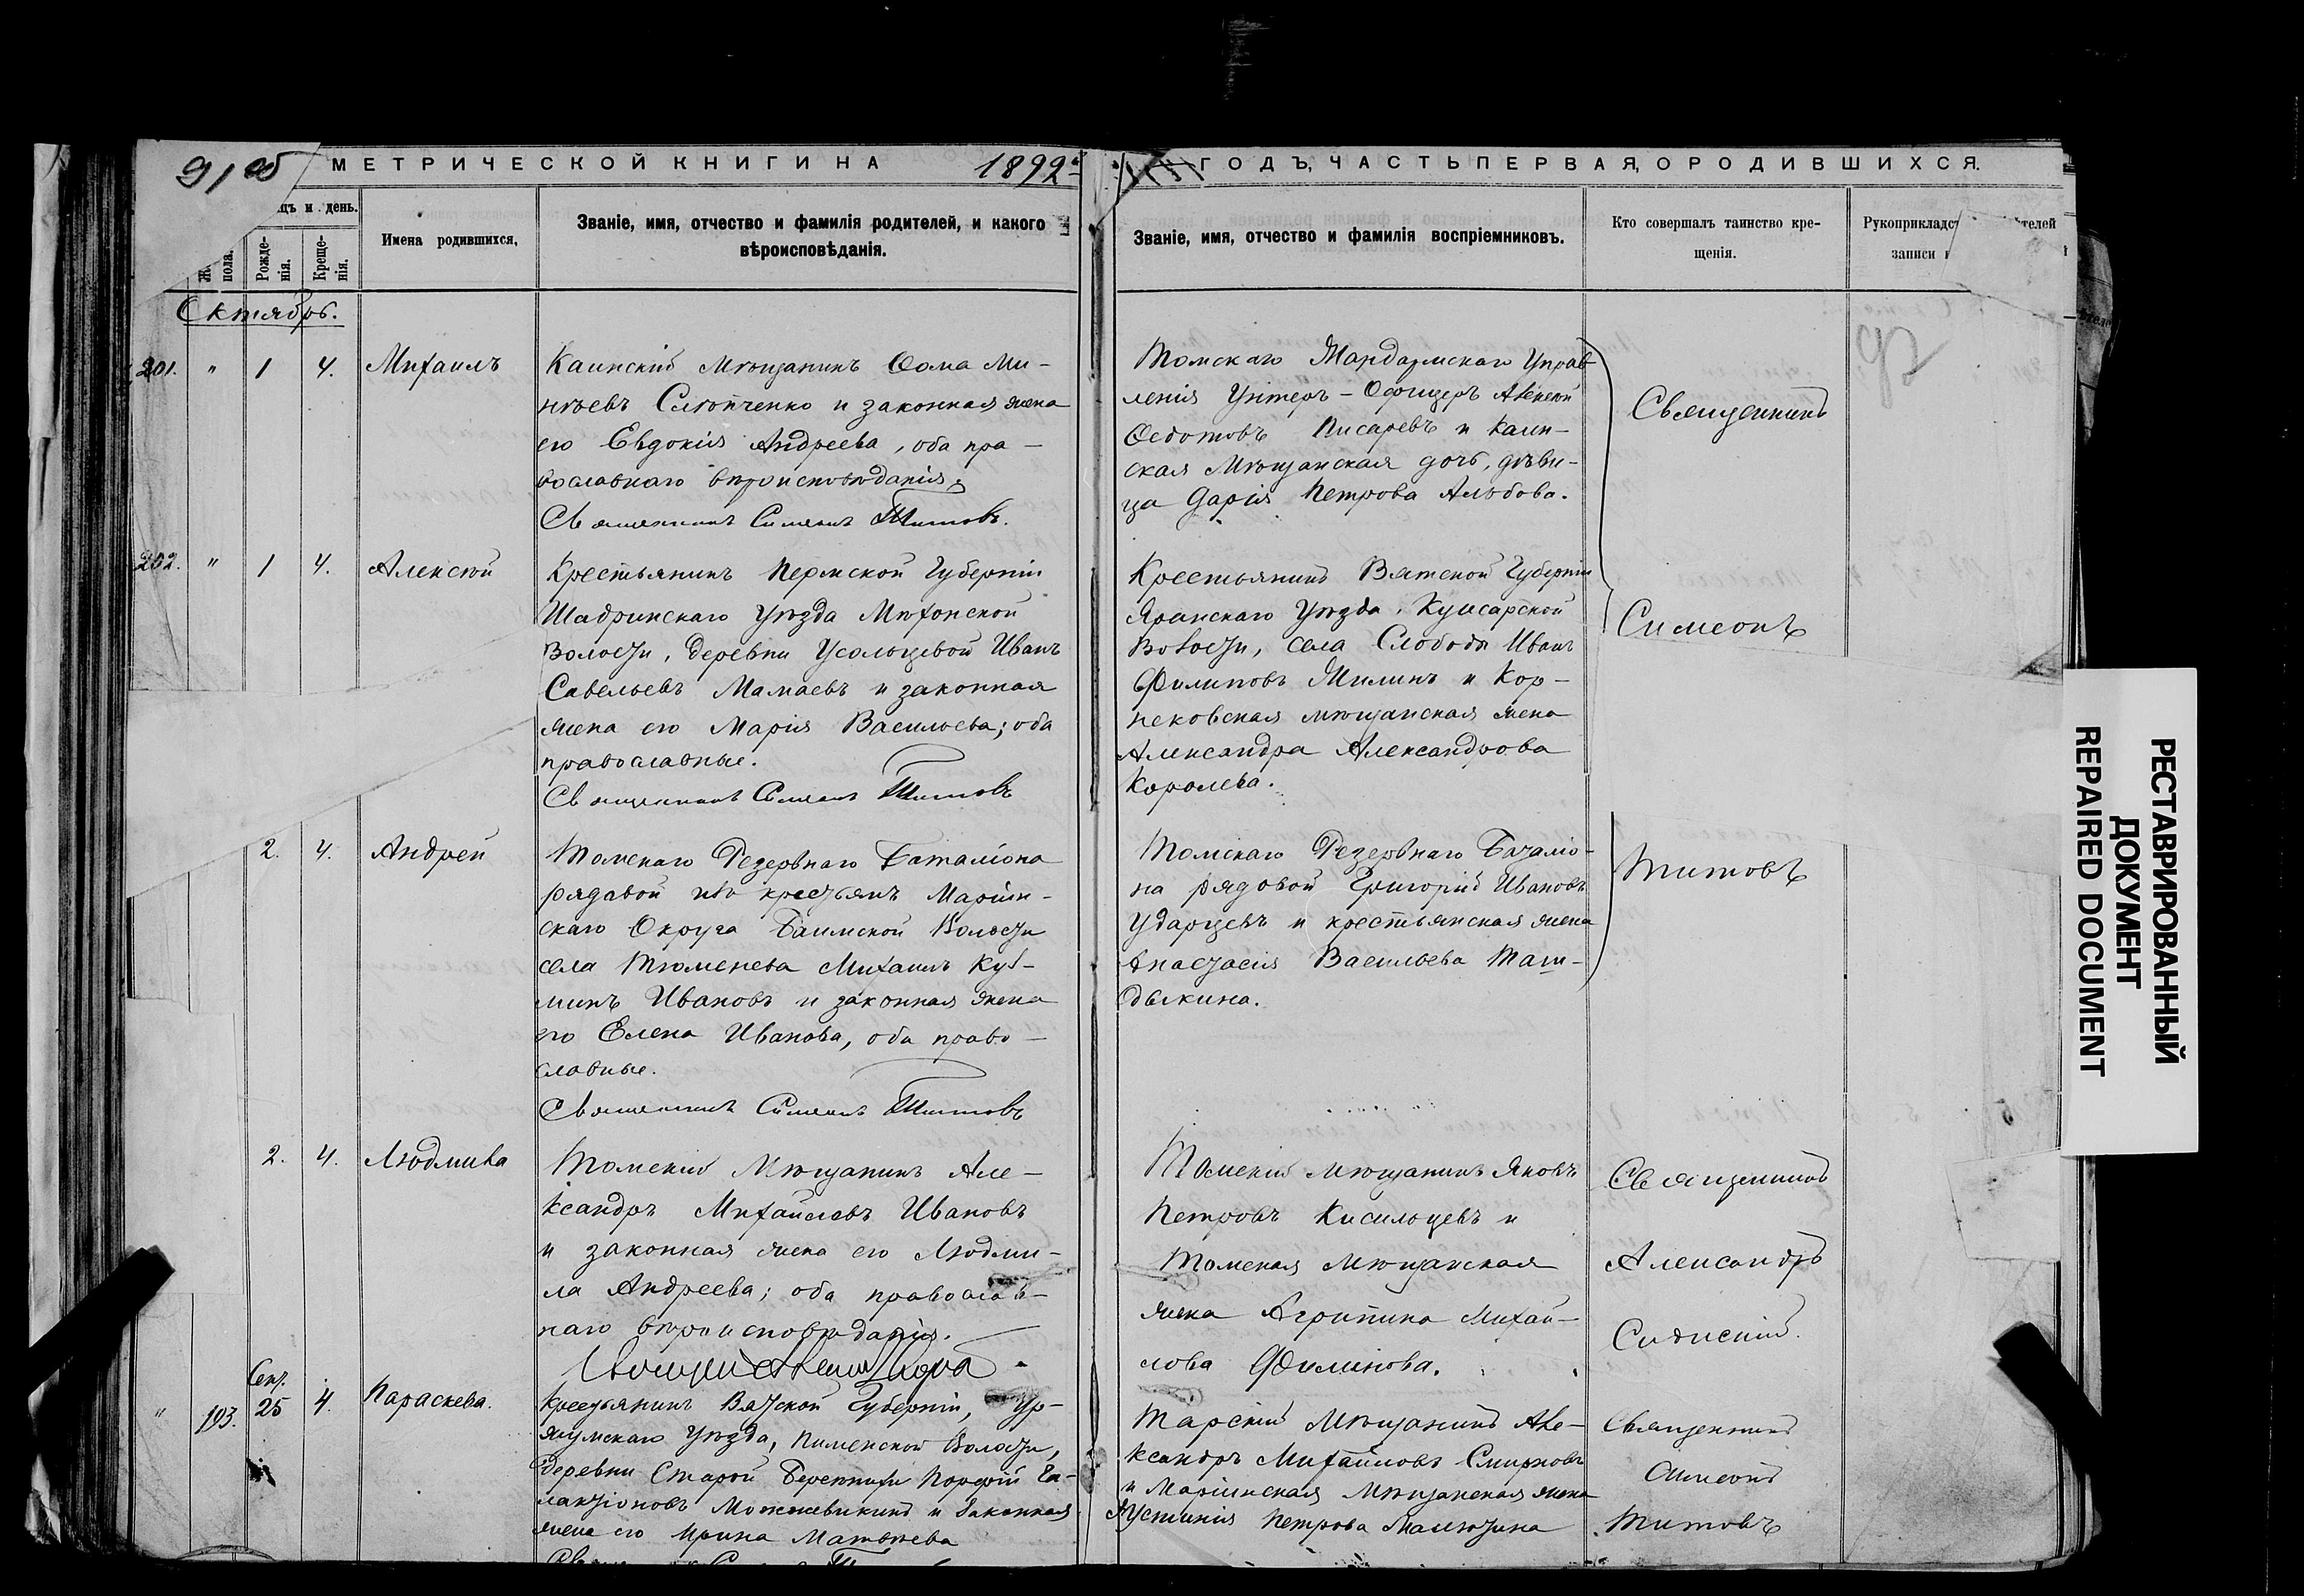 МЕТРИЧЕСКОЙ КНИГИ НА 1892 ГОДЪ, ЧАСТЬ ПЕРВАЯ, О РОДИВШИХСЯ.
цъ и день.
пола.
Рожде-
нія.
Креще-
нія.
Имена родившихся,
Званіе, имя, отчество и фамилія родителей, и какого
вѣроисповѣданія.
Званіе, имя, отчество и фамилія воспріемниковъ.
Кто совершалъ таинство кре-
щенія.
Рукоприкладст
телей
записи
Октябрь.
201. " 1 4. Михаилъ
Каинскій Мѣщанинъ Ѳома Ми-
нѣевъ Слѣпченко и законная жена
его Евдокія Андреева, оба пра-
вославнаго вѣроисповѣданія.
Священникъ Симеонъ Титовъ.
Томскаго Жандармскаго Управ
ленія Унтеръ-Офицеръ Алексѣй
Ѳедотовъ Писаревъ и Каин-
ская Мѣщанская дочь, дѣви-
ца Дарія Петрова Альбова.
Священникъ
202. " 1 4. Алексѣй
Крестьянинъ Пермской Губерніи
Шадринскаго Уѣзда Мѣхонской
Волости, деревни Усольцевой Иванъ
Савельевъ Мамаевъ и законная
жена его Марія Васильева; оба
православные.
Священникъ Симеонъ Титовъ
Крестьянинъ Вятской Губерніи
Яранскаго Уѣзда, Кушсарской
Волости, села Слободы Иванъ
Филиповъ Милинъ и Кор-
нековская мѣщанская жена
Александра Александрова
Королева.
Симеонъ
2. 4. Андрей
Томскаго Резервнаго Баталіона
рядавой изъ крестьянъ Маріин-
скаго Округа Баимской Волости
села Тюменева Михаилъ Кузь-
минъ Ивановъ и законная жена
его Елена Иванова, оба право-
славные.
Священникъ Симеонъ Титовъ
Томскаго Резервнаго Баталіо-
на рядовой Григорій Ивановъ
Ударцевъ и крестьянская жена
Анастасія Васильева Таш-
дыкина.
Титовъ
2. 4. Людмила
Томскій Мѣщанинъ Але-
ксандръ Михайловъ Ивановъ
и законная жена его Людми-
ла Андреева; оба православ-
наго вѣроисповѣданія.
Томскій мѣщанинъ Яковъ
Петровъ Кисильцевъ и
Томская мѣщанская
жена Агрипина Михай-
лова Филинова.
Священникъ
Александръ
Сидонскій.
Сент.
" 193. 25 4. Параскева.
Крестьянинъ Вятской Губерніи, Ур-
жумскаго Уѣзда, Пименской Волости,
деревни Старой Березники Порфирій Га-
лактіоновъ Можжевикинъ и законная
жена его Ирина Матвѣева
Тарскій Мѣщанинъ Але-
ксандръ Михайловъ Смирновъ
и Маріинская мѣщанская жена
Устинія Петрова Малюгина
Священникъ
Симеонъ
Титовъ
РЕСТАВРИРОВАННЫЙ
ДОКУМЕНТ
REPAIRED DOCUMENT